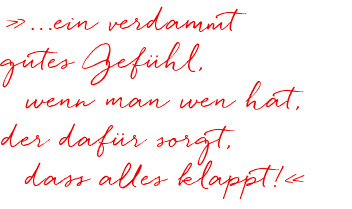 »...ein verdammt
gutes Gefühl,
wenn man wen hat,
der dafür sorgt,
dass alles klappt!«